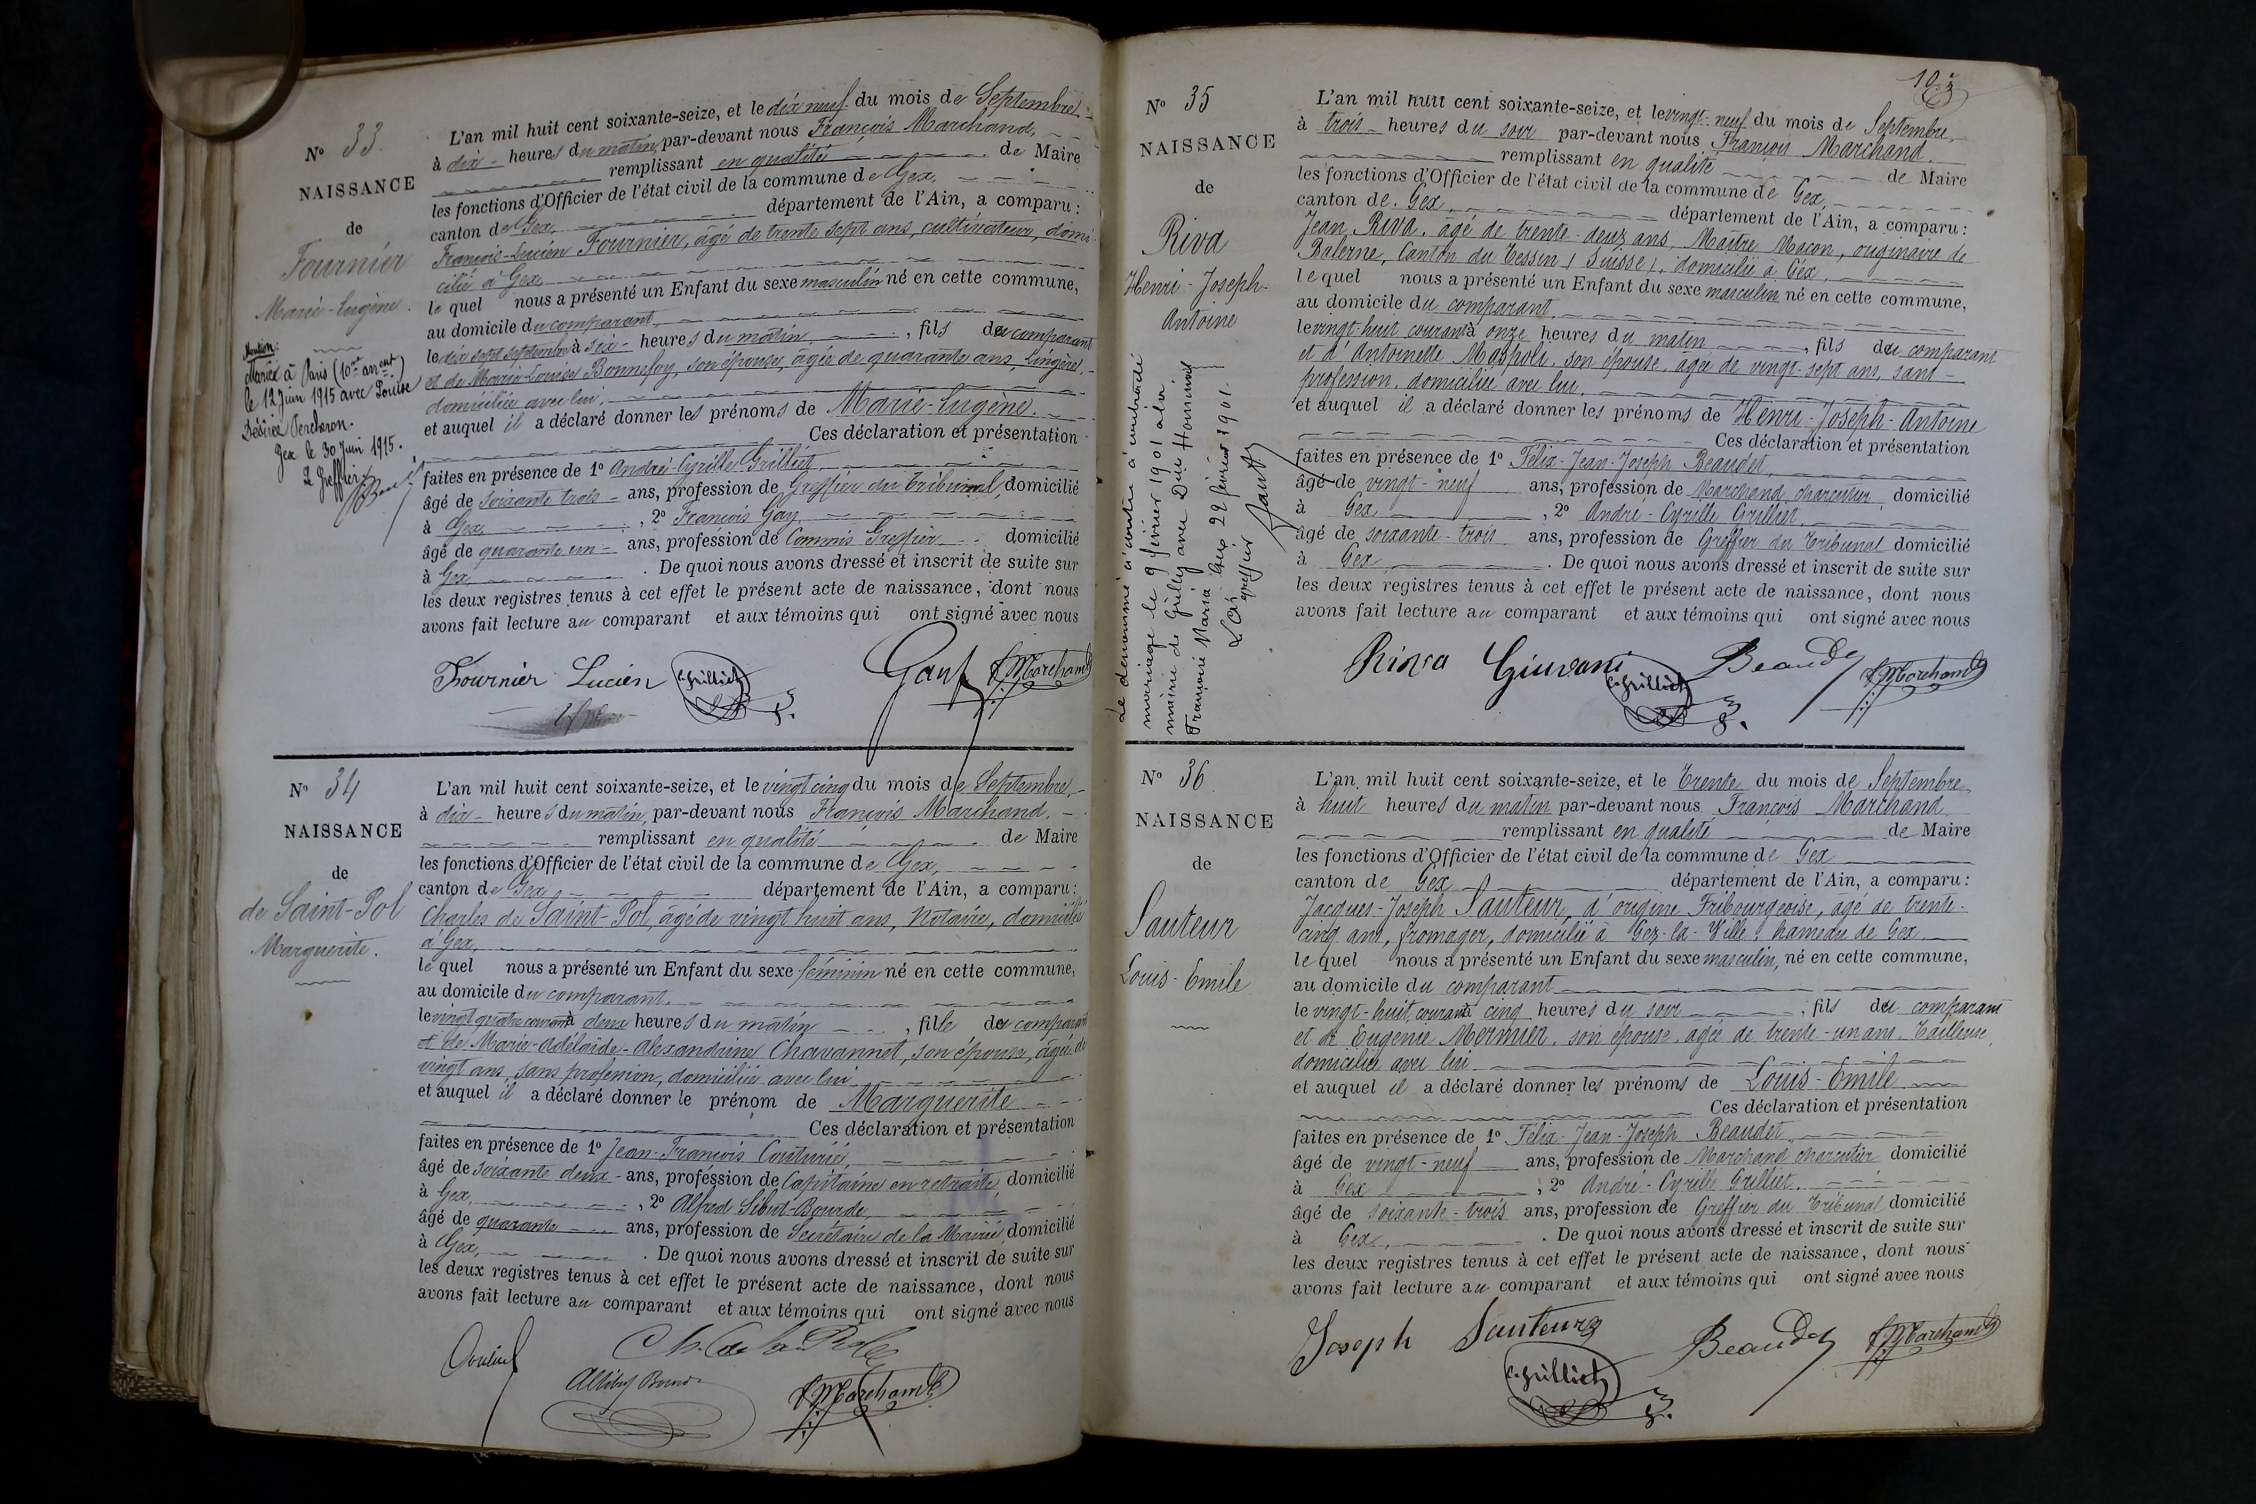 N° 33
NAISSANCE
de
Fournier
Marie-Eugène.
Mention:
Marié à Paris (10e arrent)
le 12 Juin 1915 avec Louise
Désirée Percheron.
Gex le 30 Juin 1915.
Le Greffier
L'an mil huit cent soixante-seize, et le dix neuf du mois de Septembre
à dix heures du matin, par-devant nous François Marchand,
remplissant en qualité de Maire
les fonctions d'Officier de l'état civil de la commune de Gex,
canton de Gex, département de l'Ain, a comparu:
François-Lucien Fournier, âgé de trente sept ans, cultivateur, domi-
cilié à Gex,
lequel nous a présenté un Enfant du sexe masculin né en cette commune,
au domicile du comparant,
le dix sept septembre à six heures du matin, fils du comparant
et de Marie-Louise Bonnefoy, son épouse, âgée de quarante ans, lingère,
domiciliée avec lui,
et auquel il a déclaré donner les prénoms de Marie-Eugène.
Ces déclaration et présentation
faites en présence de 1° André-Cyrille Grilliet,
âgé de soixante trois ans, profession de Greffier du Tribunal, domicilié
à Gex, 2° François Gay
âgé de quarante un ans, profession de Commis Greffier domicilié
à Gex. De quoi nous avons dressé et inscrit de suite sur
les deux registres tenus à cet effet le présent acte de naissance, dont nous
avons fait lecture au comparant et aux témoins qui ont signé avec nous
Fournier Lucien C. Grilliet Gay F. Marchand
N° 34
NAISSANCE
de
de Saint-Pol
Marguerite.
L'an mil huit cent soixante-seize, et le vingt cinq du mois de Septembre,
à dix heures du matin, par-devant nous François Marchand,
remplissant en qualité de Maire
les fonctions d'Officier de l'état civil de la commune de Gex,
canton de Gex département de l'Ain, a comparu:
Charles de Saint-Pol, âgé de vingt huit ans, Notaire, domicilié
à Gex,
lequel nous a présenté un Enfant du sexe féminin né en cette commune,
au domicile du comparant,
le vingt quatre courant à deux heures du matin, fille du comparant
et de Marie-Adélaïde-Alexandrine Chavannet, son épouse, âgée de
vingt ans, sans profession, domiciliée avec lui
et auquel il a déclaré donner le prénom de Marguerite
Ces déclaration et présentation
faites en présence de 1° Jean-François Couturié,
âgé de soixante deux ans, profession de Capitaine en retraite, domicilié
à Gex, 2° Alfred Sibut-Bourde,
âgé de quarante ans, profession de Secrétaire de la Mairie, domicilié
à Gex, De quoi nous avons dressé et inscrit de suite sur
les deux registres tenus à cet effet le présent acte de naissance, dont nous
avons fait lecture au comparant et aux témoins qui ont signé avec nous
F. Marchand
N° 35
NAISSANCE
de
Riva
Henri-Joseph-
Antoine
Le dénommé ci contre a contracté
mariage le 9 février 1901 à la
mairie de Grilly avec
Françoise Maria Gex 22 février 1901.
Le greffier
L'an mil huit cent soixante-seize, et le vingt-neuf du mois de Septembre,
à trois heures du soir par-devant nous François Marchand
remplissant en qualité de Maire
les fonctions d'Officier de l'état civil de la commune de Gex,
canton de Gex, département de l'Ain, a comparu:
Jean Riva, âgé de trente-deux ans, Maître Maçon, originaire de
Balerne, Canton du Tessin (Suisse), domicilié à Gex,
lequel nous a présenté un Enfant du sexe masculin né en cette commune,
au domicile du comparant,
le vingt-huit courant à onze heures du matin, fils du comparant
et d'Antoinette Maspoli, son épouse, âgée de vingt-sept ans, sans
profession, domiciliée avec lui,
et auquel il a déclaré donner les prénoms de Henri-Joseph-Antoine
Ces déclaration et présentation
faites en présence de 1° Félix-Jean-Joseph Beaudet,
âgé de vingt-neuf ans, profession de Marchand charcutier, domicilié
à Gex, 2° André-Cyrille Grilliet,
âgé de soixante-trois ans, profession de Greffier du Tribunal domicilié
à Gex. De quoi nous avons dressé et inscrit de suite sur
les deux registres tenus à cet effet le présent acte de naissance, dont nous
avons fait lecture au comparant et aux témoins qui ont signé avec nous
Riva Giuvani C. Grilliet Beaudet F. Marchand
N° 36
NAISSANCE
de
Sauteur
Louis-Emile
L'an mil huit cent soixante-seize, et le Trente du mois de Septembre,
à huit heures du matin par-devant nous François Marchand
remplissant en qualité de Maire
les fonctions d'Officier de l'état civil de la commune de Gex
canton de Gex département de l'Ain, a comparu:
Jacques-Joseph Sauteur, d'origine Fribourgeoise, âgé de trente-
cinq ans, fromager, domicilié à Gex-la-Ville, hameau de Gex
lequel nous a présenté un Enfant du sexe masculin, né en cette commune,
au domicile du comparant
le vingt-huit courant à cinq heures du soir, fils du comparant
et de Eugénie Mermier, son épouse, âgée de trente-un ans, Tailleuse,
domiciliée avec lui
et auquel il a déclaré donner les prénoms de Louis-Emile
Ces déclaration et présentation
faites en présence de 1° Félix-Jean-Joseph Beaudet,
âgé de vingt-neuf ans, profession de Marchand charcutier domicilié
à Gex, 2° André-Cyrille Grilliet,
âgé de soixante-trois ans, profession de Greffier du Tribunal domicilié
à Gex. De quoi nous avons dressé et inscrit de suite sur
les deux registres tenus à cet effet le présent acte de naissance, dont nous
avons fait lecture au comparant et aux témoins qui ont signé avec nous
Joseph Sauteur C. Grilliet Beaudet F. Marchand